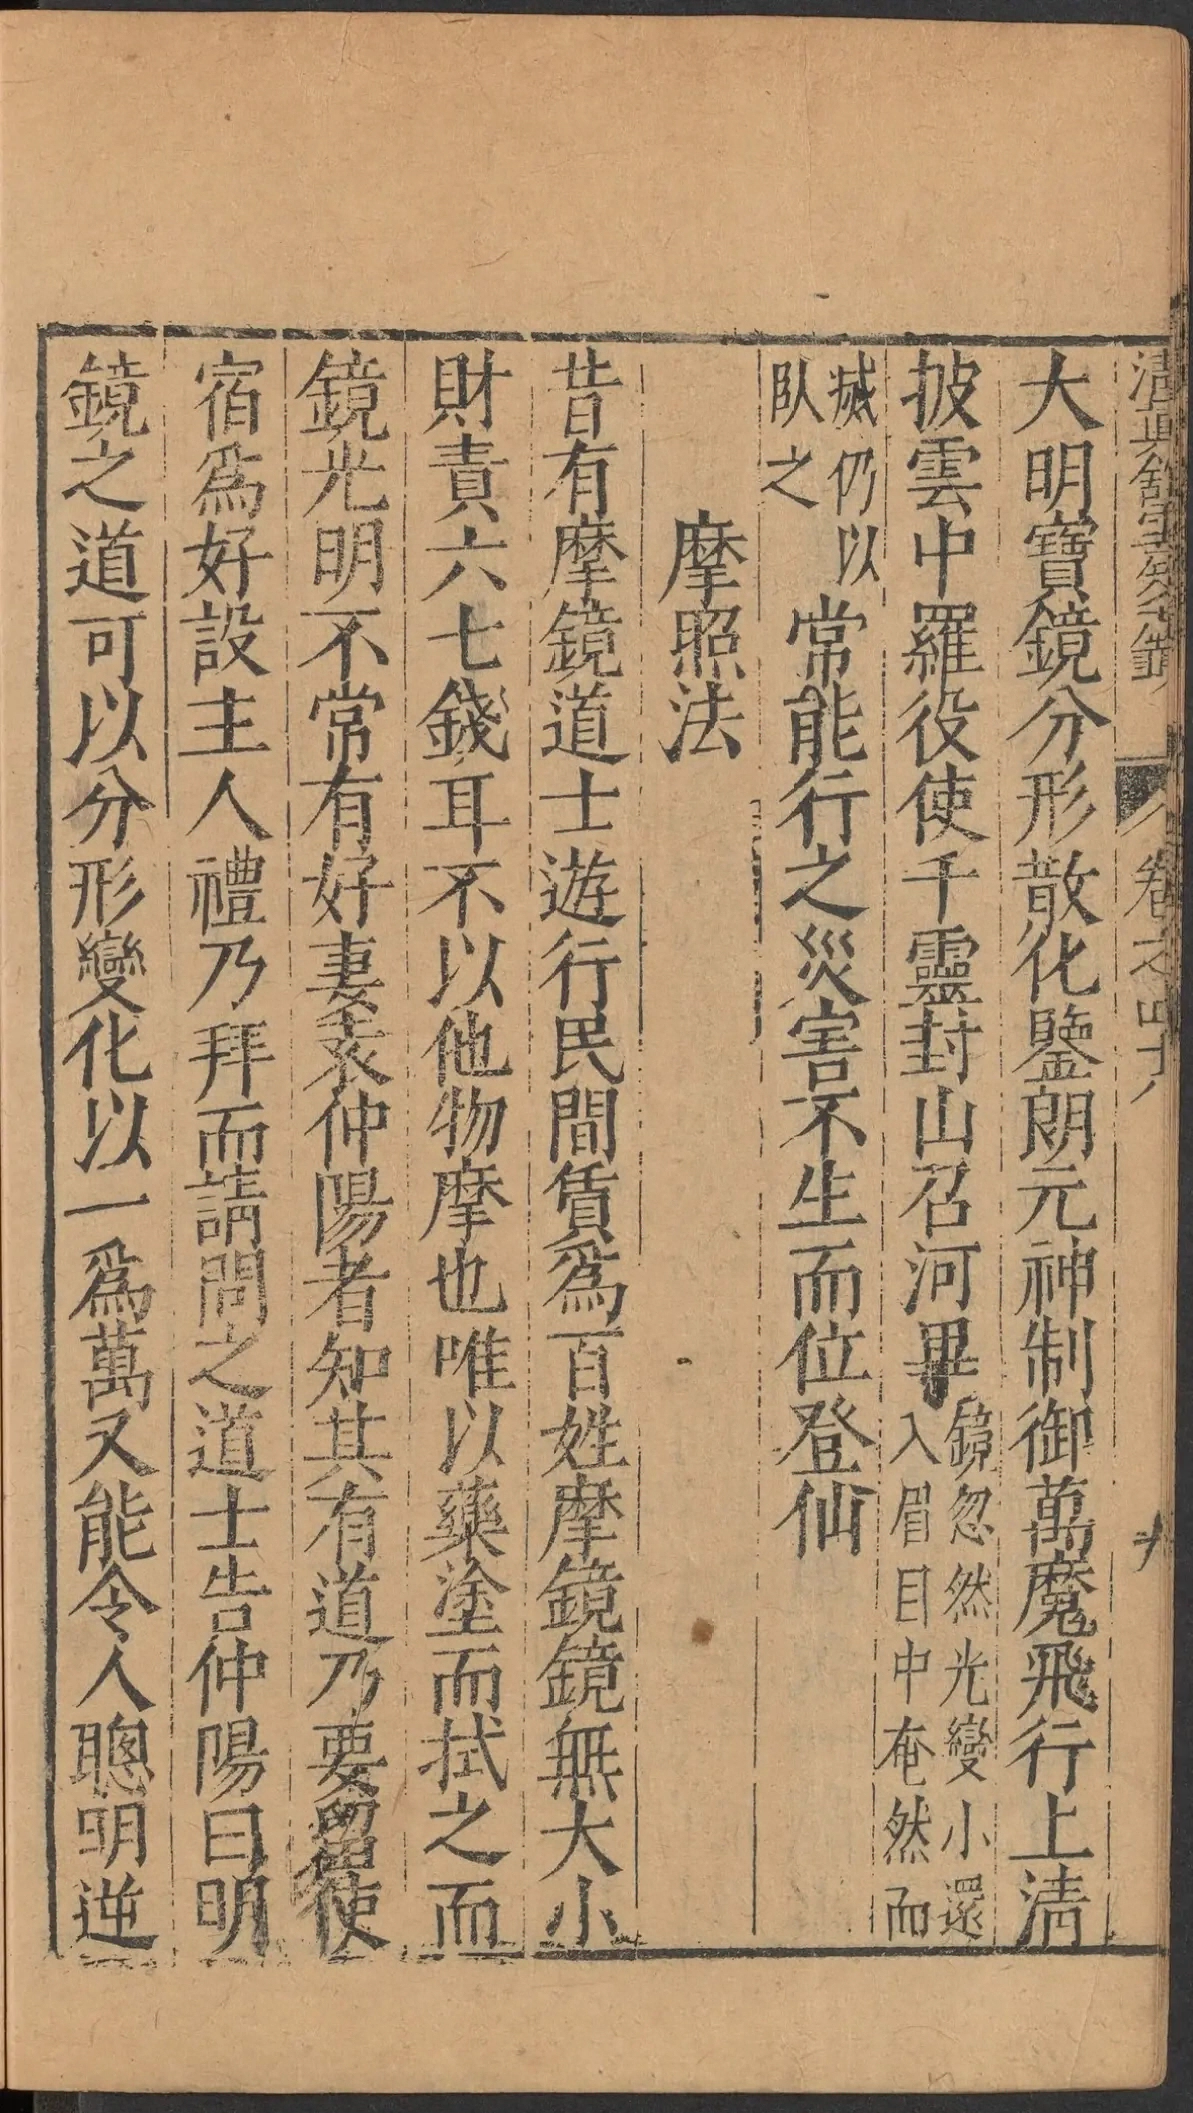 清真館雲笈七籤 卷之四十八 九
大明寶鏡分形散化鑒朗元神制御萬魔飛行上清
披雲中羅役使千靈封山召河畢鏡忽然光變小還入眉目中奄然而
滅仍以臥之常能行之災害不生而位登仙
摩照法
昔有摩鏡道士遊行民間賃爲百姓摩鏡鏡無大小
財責六七錢耳不以他物摩也唯以藥塗而拭之而
鏡光明不常有好妻袁仲陽者知其有道乃要留使
宿爲好設主人禮乃拜而請問之道士告仲陽曰明
鏡之道可以分形變化以一爲萬又能令人聰明逆